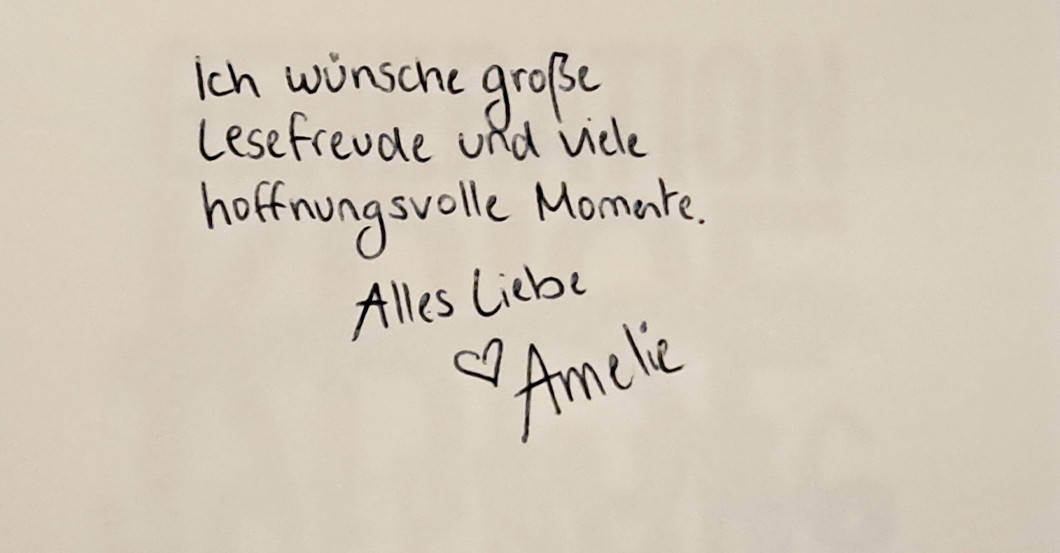 Ich wünsche große
Lesefreude und viele
hoffnungsvolle Momente.
Alles Liebe
♡ Amelie